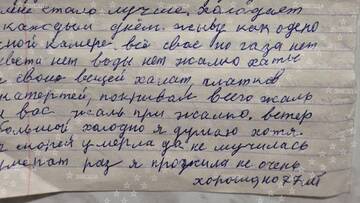 мне стало лучше, холодает
каждым днём. живу как одено
ной камере. всё своё но газа нет
света нет воды нет жалко хаты
и свои вещей халат, платков
катертей, покривам всего жаль
и вас жаль при жалко, ветер
большой холодно я думаю хотя.
скорей умерла да не мучилась
умерат раз я прожила не очень
хорошо но 77 лет